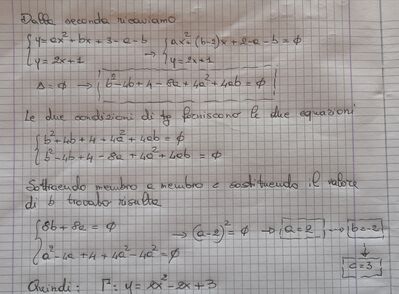 Dalla seconda ricaviamo
{y=ax²+bx+3-a-b → {ax²+(b-2)x+2-a-b=φ
{y=2x+1 {y=2x+1
Δ=φ → b²-4b+4-8a+4a²+4ab=φ
Le due condizioni di tg forniscono le due equazioni
{b²+4b+4+4a²+4ab=φ
{b²-4b+4-8a+4a²+4ab=φ
Sottraendo membro a membro e sostituendo il valore
di b trovato risulta
{8b+8a=φ → (a-2)²=φ → a=2 → b=-2
{a²-4a+4+4a²-4a²=φ
c=3
Quindi: Γ: y=2x²-2x+3